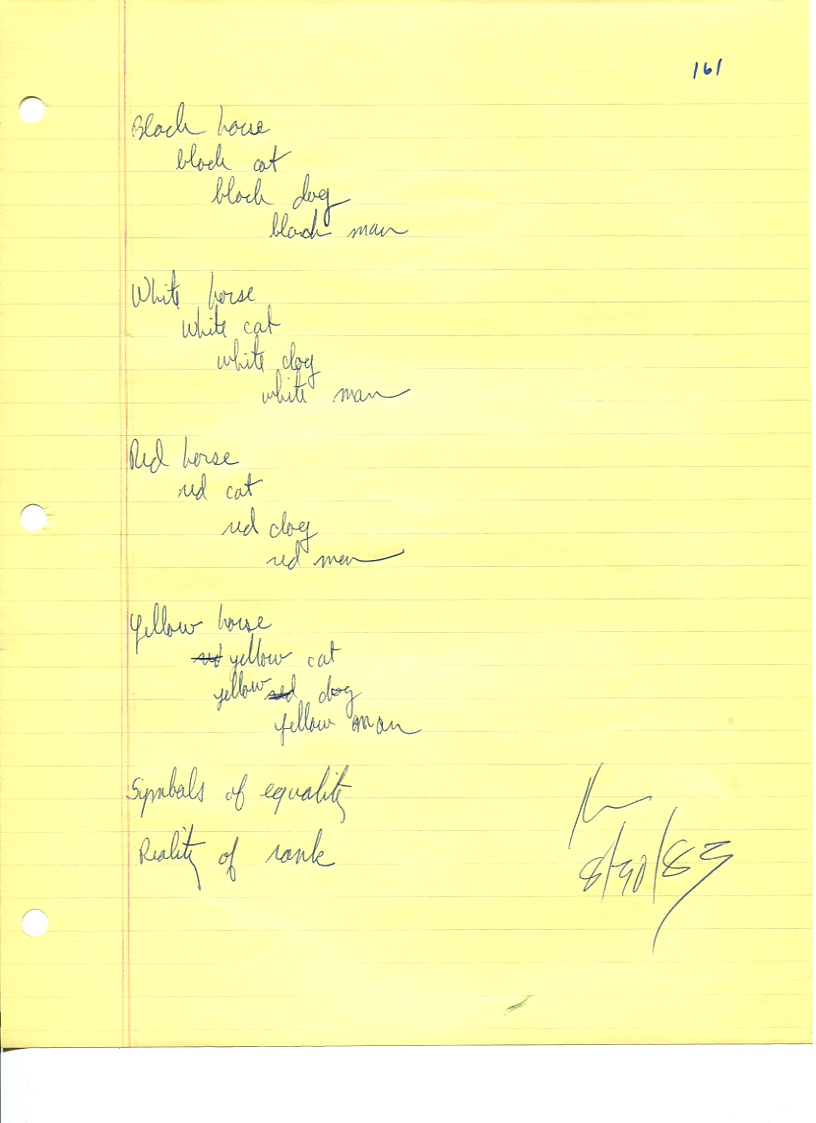 161
Black horse
black cat
black dog
black man
White horse
white cat
white dog
white man
Red horse
red cat
red dog
red man
Yellow horse
red yellow cat
yellow red dog
yellow man
Symbols of equality
Reality of rank
8/30/83